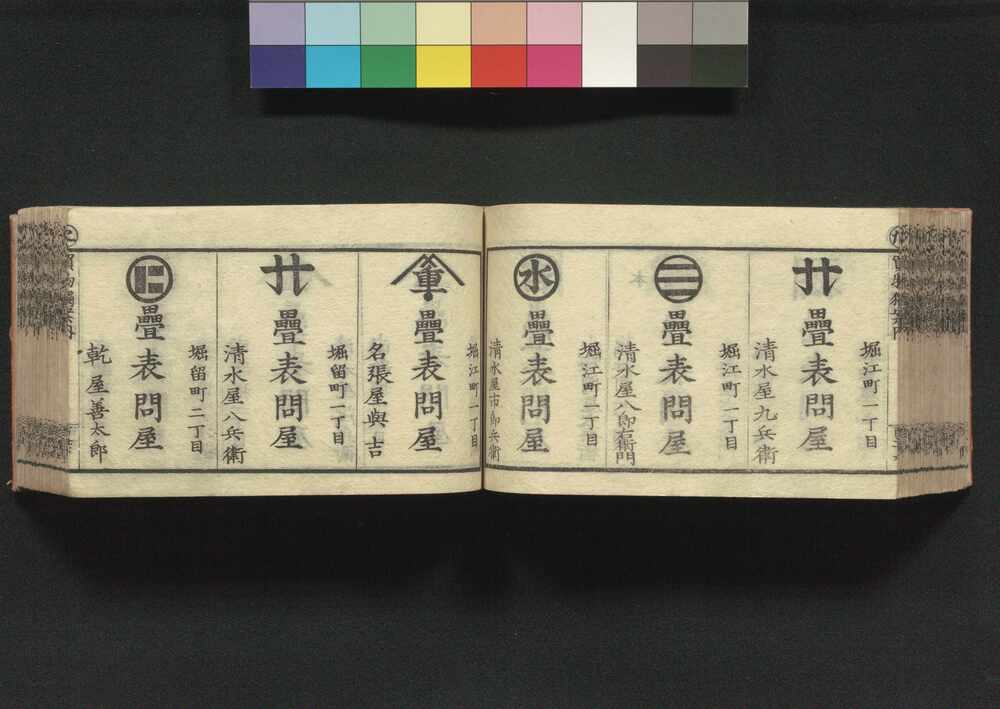 堀江町一丁目
卄
疊表問屋
清水屋九兵衛
堀江町一丁目
三
疊表問屋
清水屋八郎右衛門
堀江町一丁目
水
疊表問屋
清水屋市郎兵衛
堀江町一丁目
重
疊表問屋
名張屋與吉
堀留町一丁目
卄
疊表問屋
清水屋八兵衛
堀留町二丁目
疊表問屋
乾屋善太郎